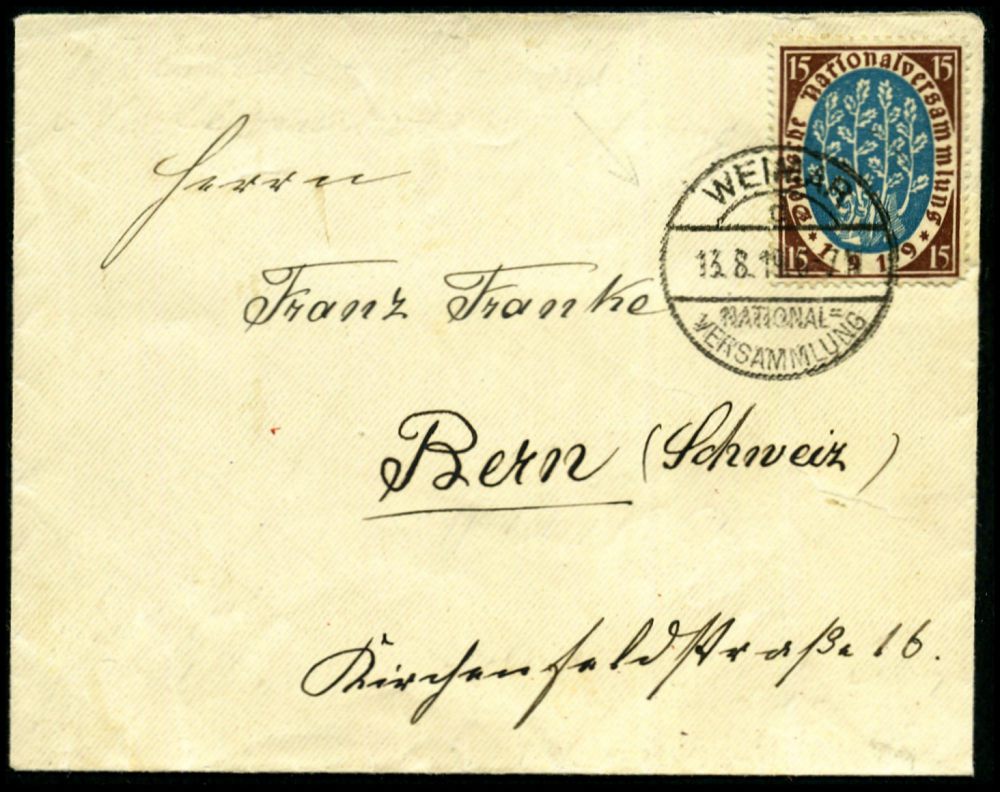 15 15
Deutsche Nationalversammlung
* 1919 *
15 15
WEIMAR
13.8.19
NATIONAL=
VERSAMMLUNG
Herrn
Franz Franke
Bern (Schweiz)
Kirchenfeldstraße 16.